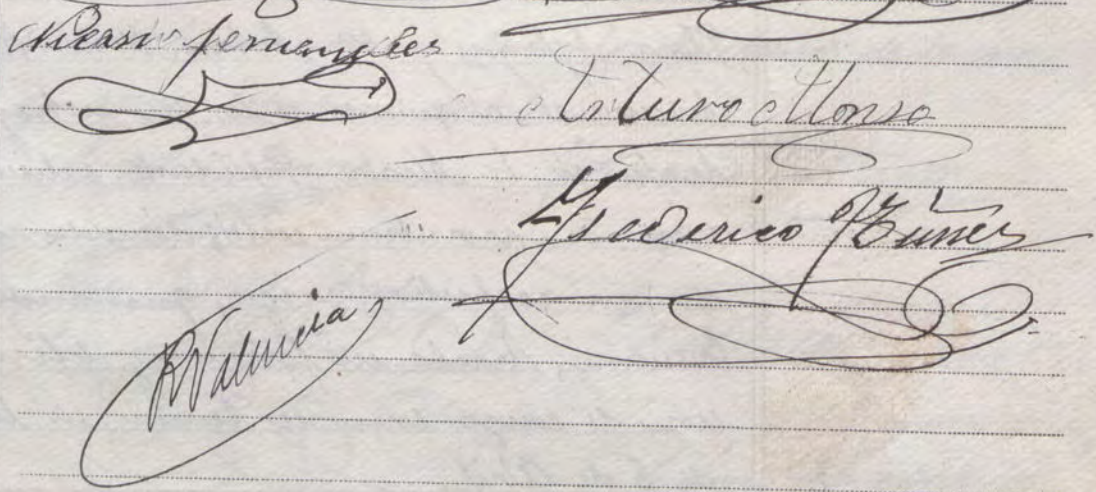 Nicasio fernandes
Arturo Alonso
Federico Núñez
R Valencia